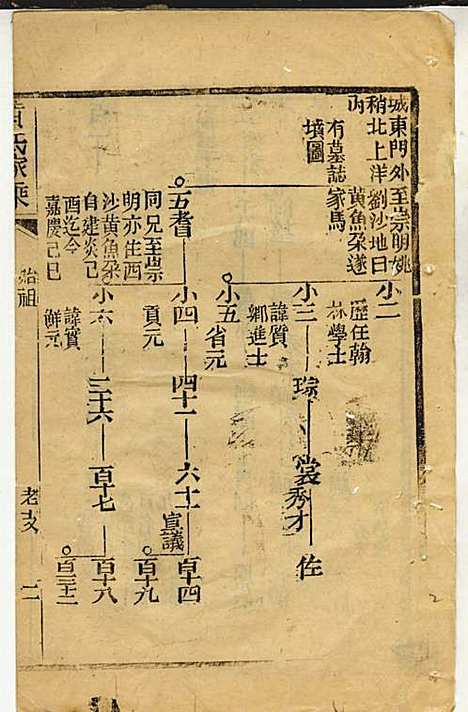 城東門外至崇明姚
稍北上洋劉沙地曰
西
黃魚朶遂
家馬
有墓誌
墳圖
小二
歷任翰
林學士
小三
琮
裳秀才
佐
諱質
鄉進士
小五
省元
小四
四十一
六十二
百十四
貢元
宣議
百十九
五耆
同兄至崇
明亦住西
沙黃魚朶
自建炎己
酉迄今
嘉慶己巳
小六
三十六
百十七
百十八
諱實
解元
百二十二
黃氏家乘
始祖
老支
二
2